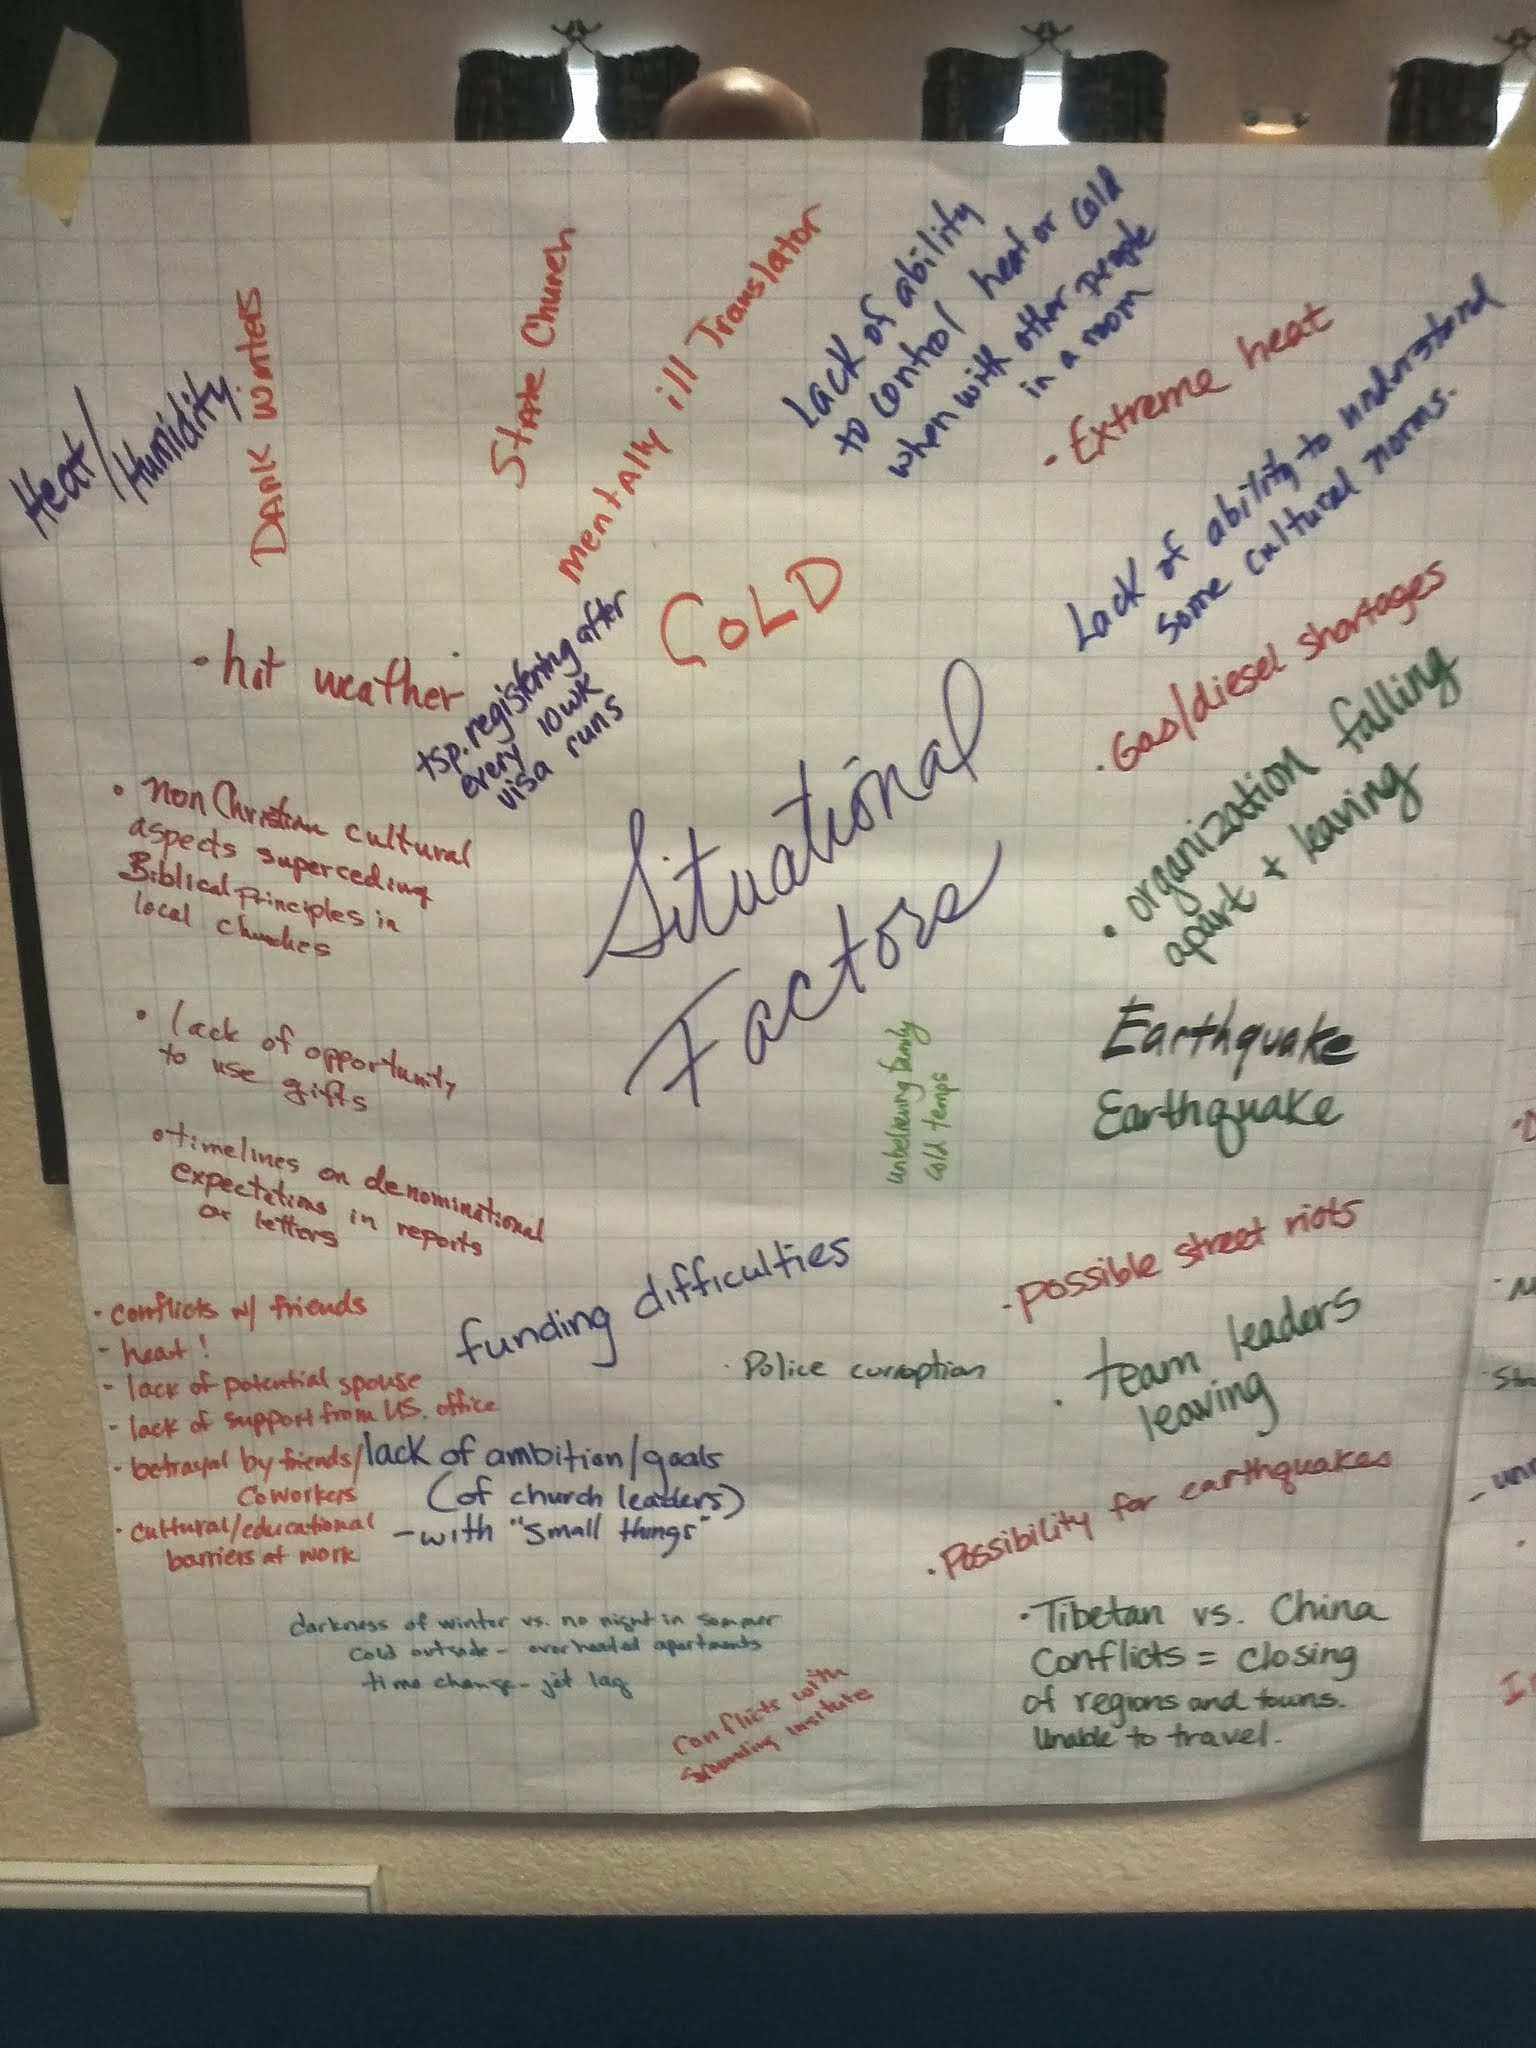 Heat/
Humidity
DARK winters
State Church
mentally ill Translator
Lack of ability
to control heat or cold
when with other people
in a room
• Extreme heat
Lack of ability to understand
some cultural norms.
• hot weather
tsp. registering after
every 10wk
visa runs
COLD
• Gas/diesel shortages
• organization falling
apart + leaving
Situational
Factors
• non Christian cultural
aspects superceding
Biblical principles in
local churches
• lack of opportunity
to use gifts
• timelines on denominational
expectations in reports
or letters
unbelieving family
cold temps
Earthquake
Earthquake
• possible street riots
• team leaders
leaving
funding difficulties
• Police corruption
- conflicts w/ friends
- heat!
- lack of potential spouse
- lack of support from U.S. office
- betrayal by friends/
coworkers
• cultural/educational
barriers at work
lack of ambition/goals
(of church leaders)
- with "small things"
• Possibility for earthquakes
• Tibetan vs. China
Conflicts = closing
of regions and towns.
Unable to travel.
darkness of winter vs. no night in sommer
cold outside - overheated apartments
time change - jet lag
Conflicts with